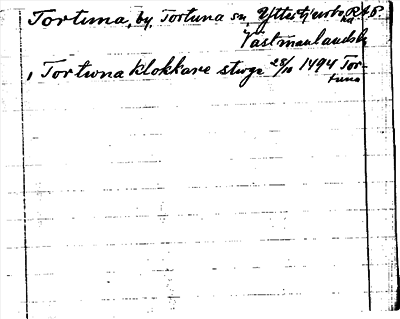 Tortuna, by, Tortuna sn, Yttertjurbo
Västmanlands
, Tortwna klokkare stwge 28/10 1494 Tor-
tuna